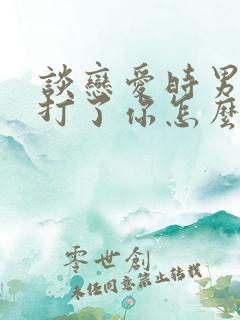 談戀愛時男
打了你怎麼
零世創
未任同意禁止转载